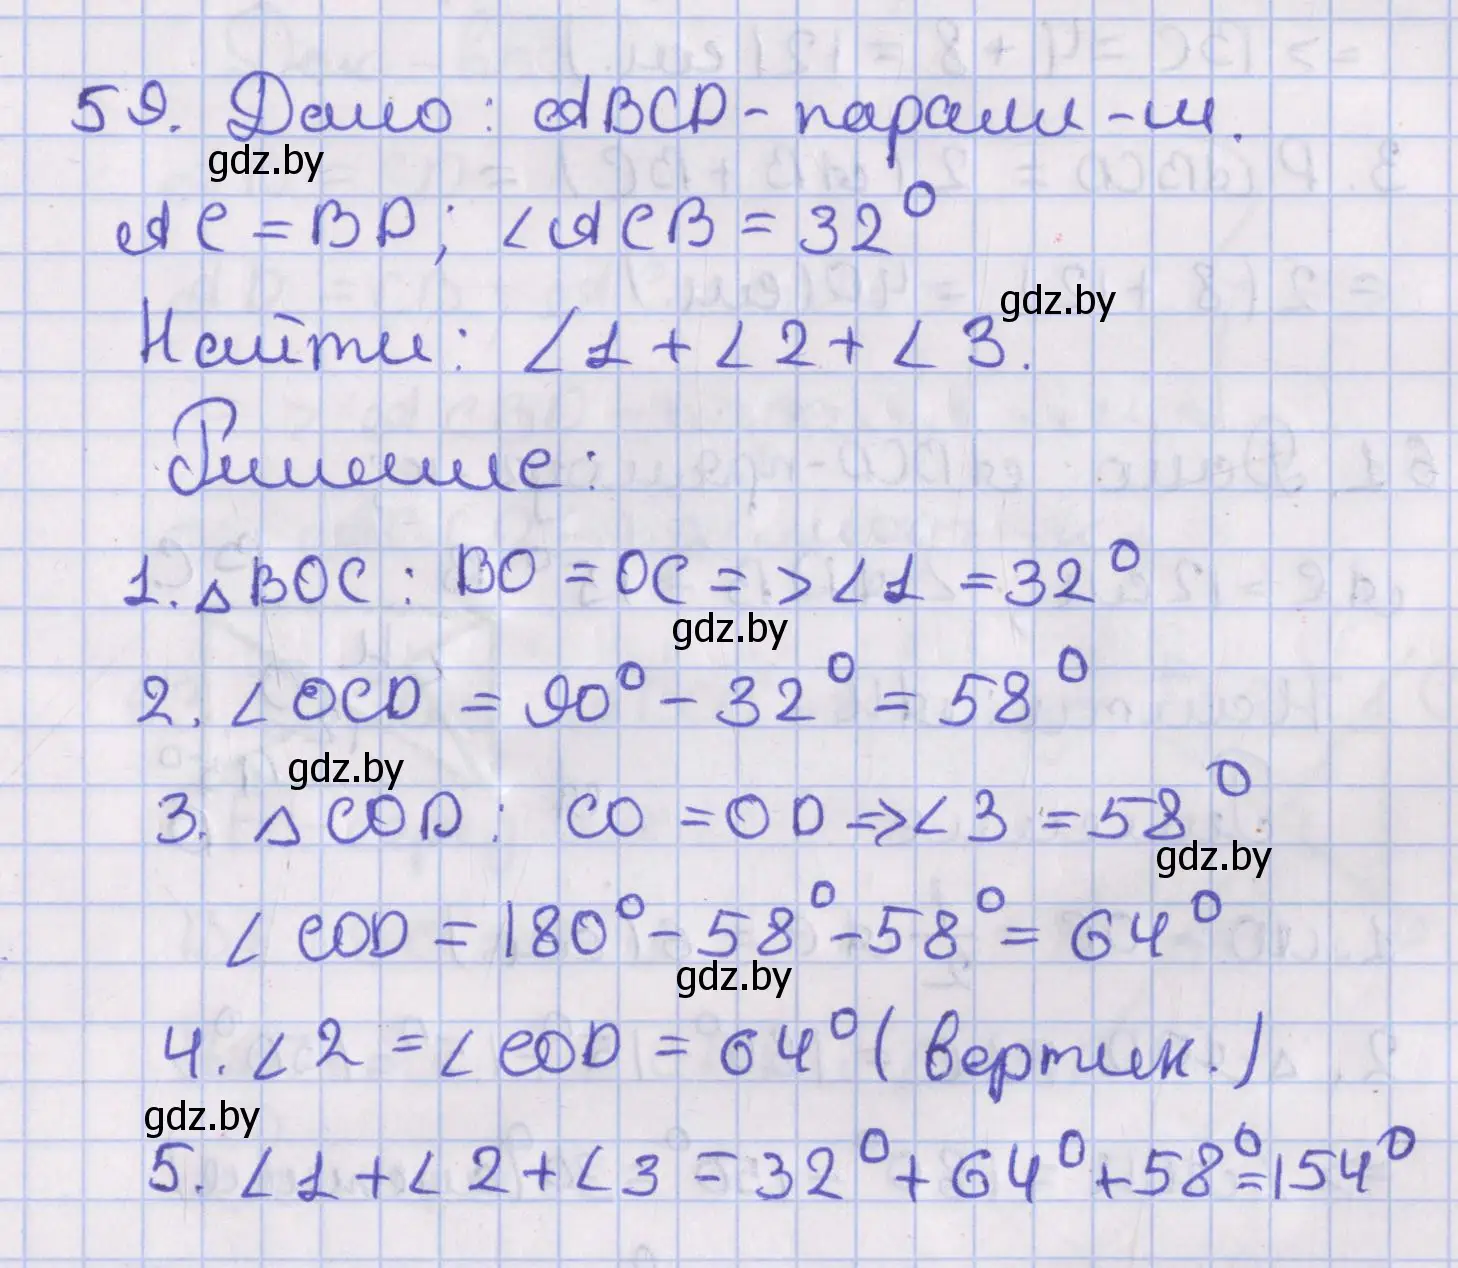 59. Дано: ABCD - паралл-м.
gdz.by
AC = BD; ∠ACB = 32°
gdz.by
Найти: ∠1 + ∠2 + ∠3.
Решение:
1. △BOC: BO = OC => ∠1 = 32°
gdz.by
2. ∠OCD = 90° - 32° = 58°
gdz.by
3. △COD: CO = OD => ∠3 = 58°
gdz.by
∠COD = 180° - 58° - 58° = 64°
gdz.by
4. ∠2 = ∠COD = 64° (вертик.)
gdz.by
5. ∠1 + ∠2 + ∠3 = 32° + 64° + 58° = 154°